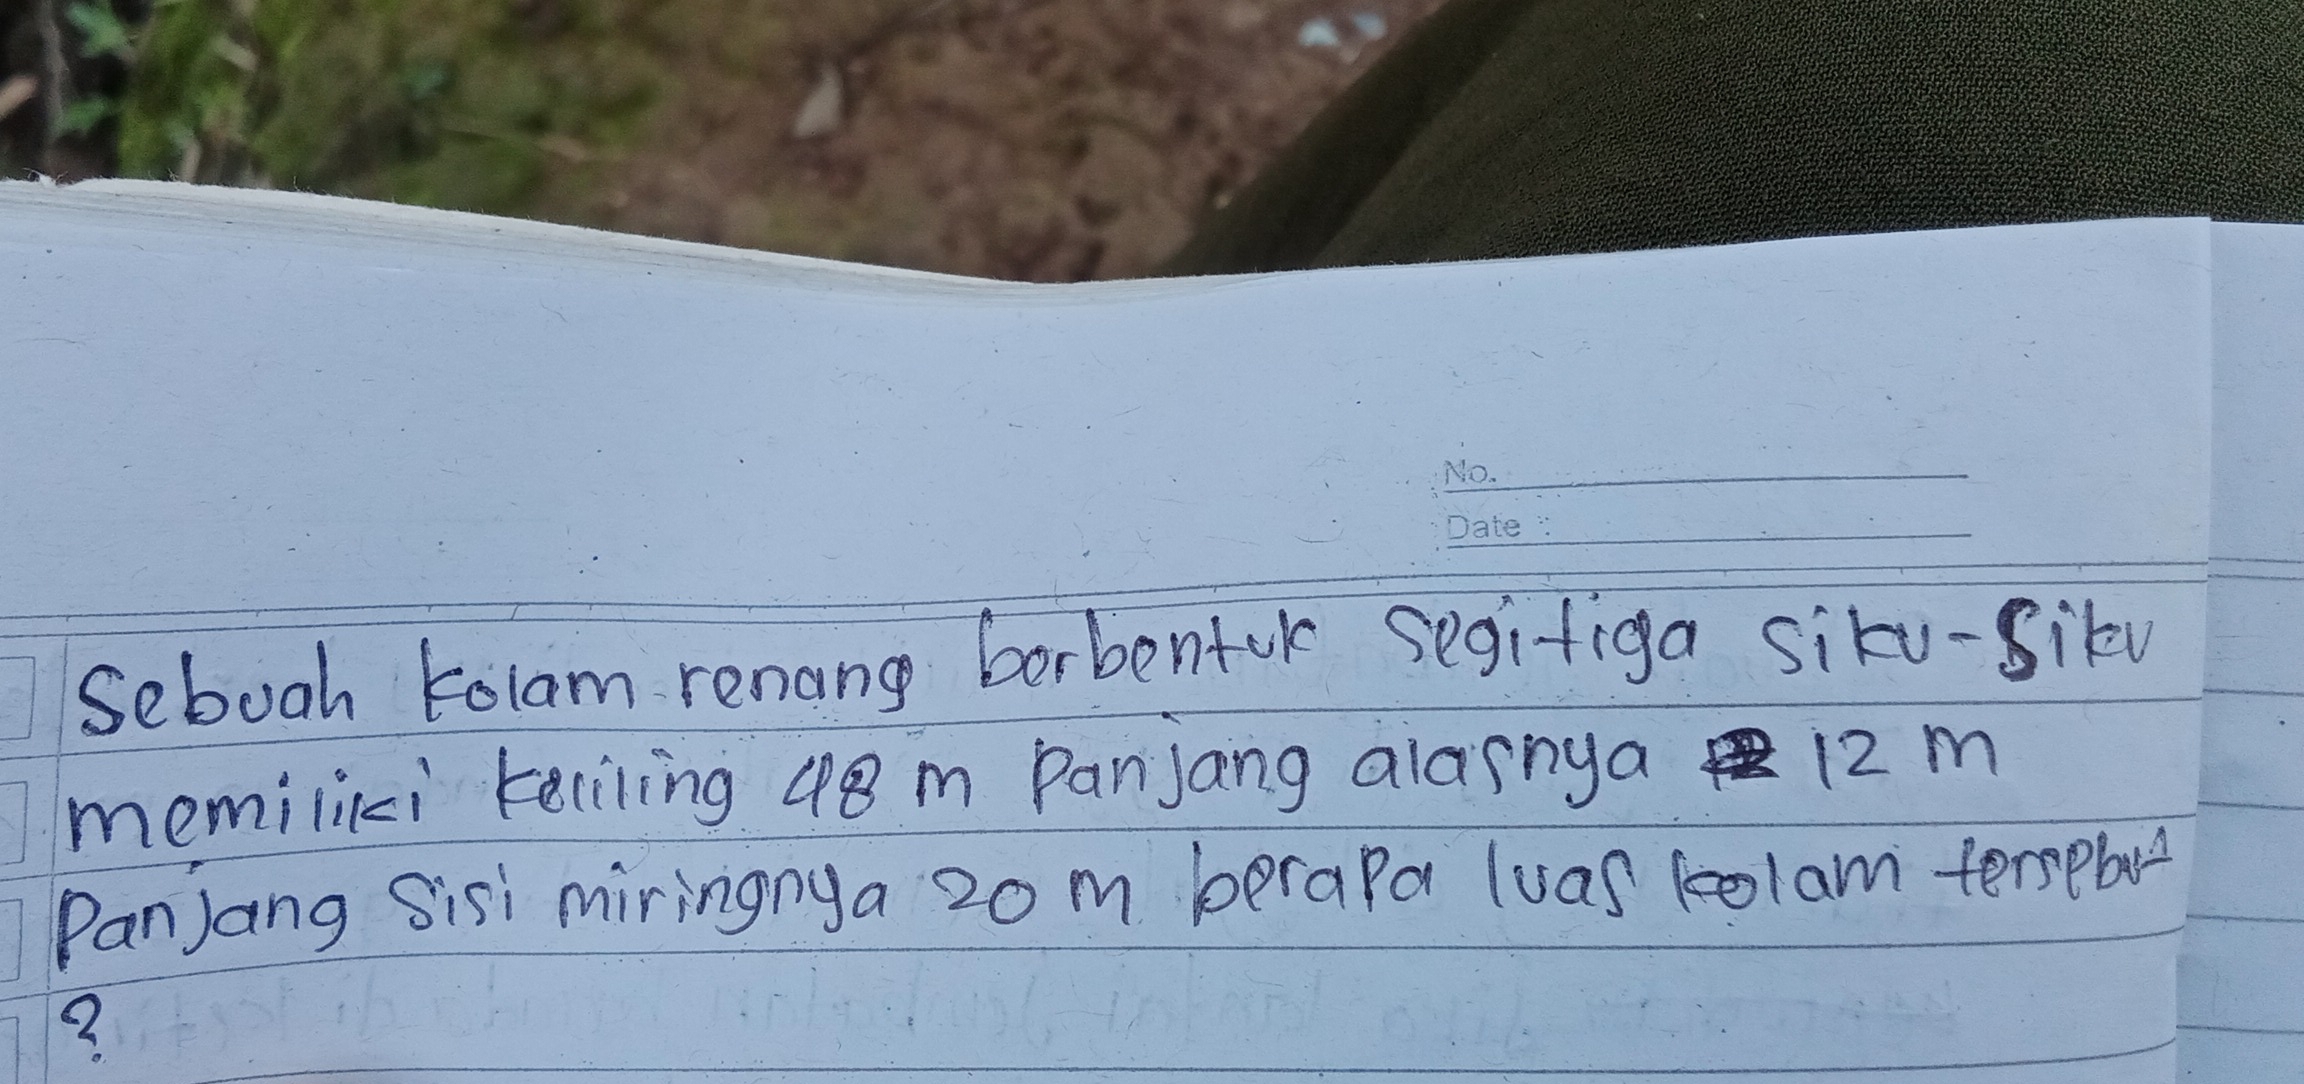 No.
Date :
Sebuah kolam renang berbentuk segitiga siku-siku
memiliki keliling 48 m panjang alasnya 12 m
panjang sisi miringnya 20 m berapa luas kolam tersebut
?